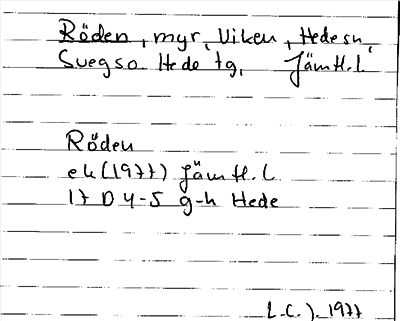 Röden, myr, Viken, Hede sn,
Svegs o Hede tg, Jämtl.l.
Röden
ek (1977) Jämtl.l
17 D 4-5 g-h Hede
L.C.J. 1977